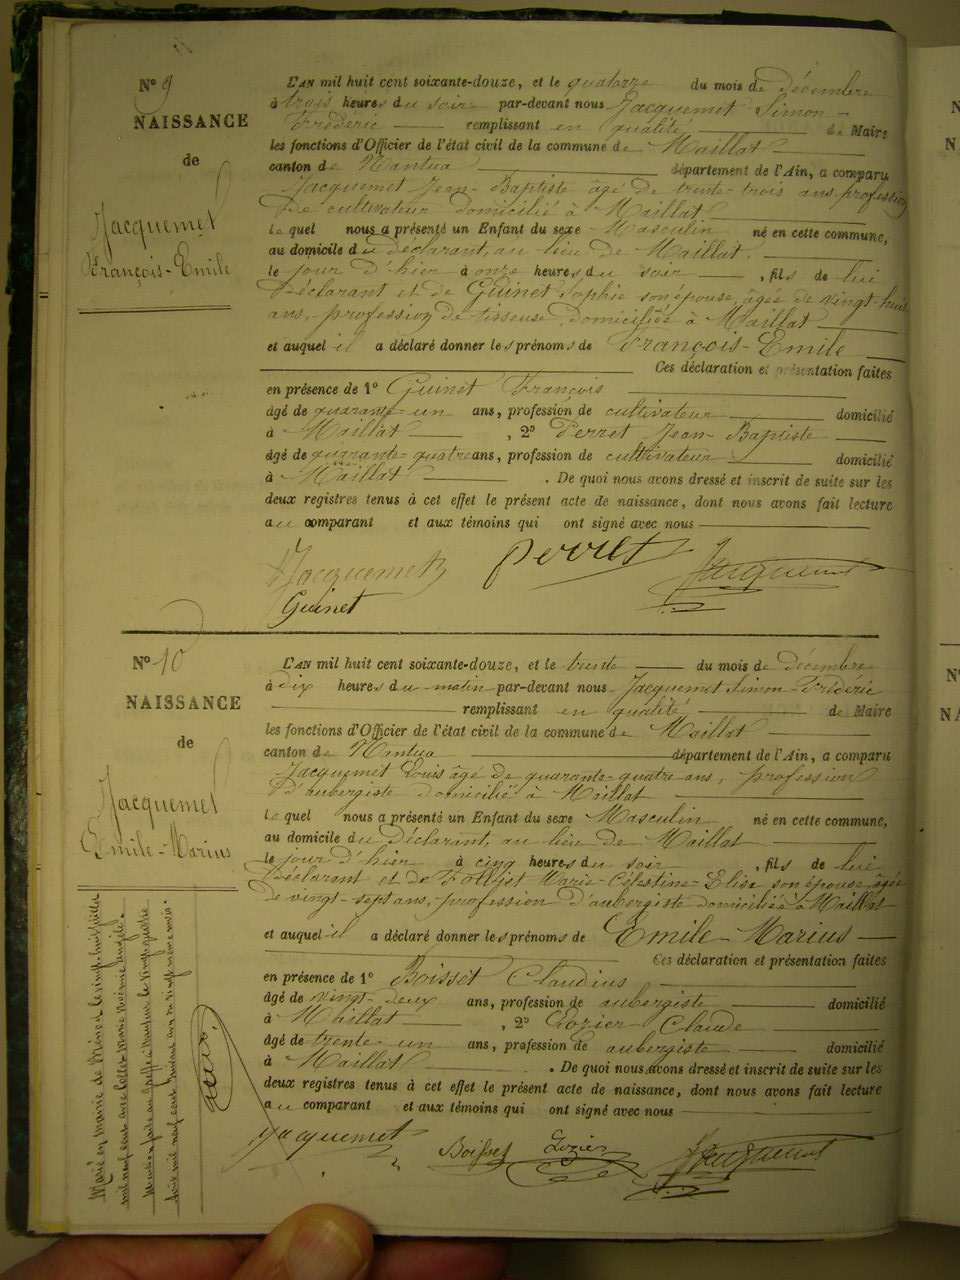 N° 9
NAISSANCE
de
Jacquemet
François-Emile
L'AN mil huit cent soixante-douze, et le quatorze du mois de Décembre
à trois heures du soir par-devant nous Jacquemet Simon-
Frédéric remplissant en qualité de Maire
les fonctions d'Officier de l'état civil de la commune de Maillat
canton de Nantua département de l'Ain, a comparu
Jacquemet Jean-Baptiste âgé de trente-trois ans, profession
de cultivateur domicilié à Maillat
Le quel nous a présenté un Enfant du sexe Masculin né en cette commune,
au domicile du Déclarant, au lieu de Maillat.
le jour d'hier à onze heures du soir, fils de lui
Déclarant et de Guinet Sophie son épouse, âgée de vingt-huit
ans, profession de tisseuse domiciliée à Maillat
et auquel il a déclaré donner les prénoms de François-Emile
Ces déclaration et présentation faites
en présence de 1° Guinet François
âgé de quarante-un ans, profession de cultivateur domicilié
à Maillat, 2° Perret Jean-Baptiste
âgé de quarante-quatre ans, profession de cultivateur domicilié
à Maillat. De quoi nous avons dressé et inscrit de suite sur les
deux registres tenus à cet effet le présent acte de naissance, dont nous avons fait lecture
au comparant et aux témoins qui ont signé avec nous
Jacquemet Perret Jacquemet
Guinet
N° 10
NAISSANCE
de
Jacquemet
Emile-Marius
L'AN mil huit cent soixante-douze, et le trente du mois de décembre
à dix heures du matin par-devant nous Jacquemet Simon-Frédéric
remplissant en qualité de Maire
les fonctions d'Officier de l'état civil de la commune de Maillat
canton de Nantua département de l'Ain, a comparu
Jacquemet Louis âgé de quarante-quatre ans, profession
d'aubergiste domicilié à Maillat
Le quel nous a présenté un Enfant du sexe Masculin né en cette commune,
au domicile du Déclarant, au lieu de Maillat
le jour d'hier à cinq heures du soir, fils de lui
Déclarant et de Marie-Célestine-Elise son épouse âgée
de vingt-sept ans, profession d'aubergiste domiciliée à Maillat
et auquel il a déclaré donner les prénoms de Emile-Marius
Ces déclaration et présentation faites
en présence de 1° Boisset Claudius
âgé de vingt-deux ans, profession de aubergiste domicilié
à Maillat, 2° Lozier Claude
âgé de trente un ans, profession de aubergiste domicilié
à Maillat. De quoi nous avons dressé et inscrit de suite sur les
deux registres tenus à cet effet le présent acte de naissance, dont nous avons fait lecture
au comparant et aux témoins qui ont signé avec nous
Jacquemet Boisset Lozier Jacquemet
Marié en mairie de le vingt huit juillet
mil neuf cent avec Marie
Mention faite au Greffe à Nantua le vingt quatre